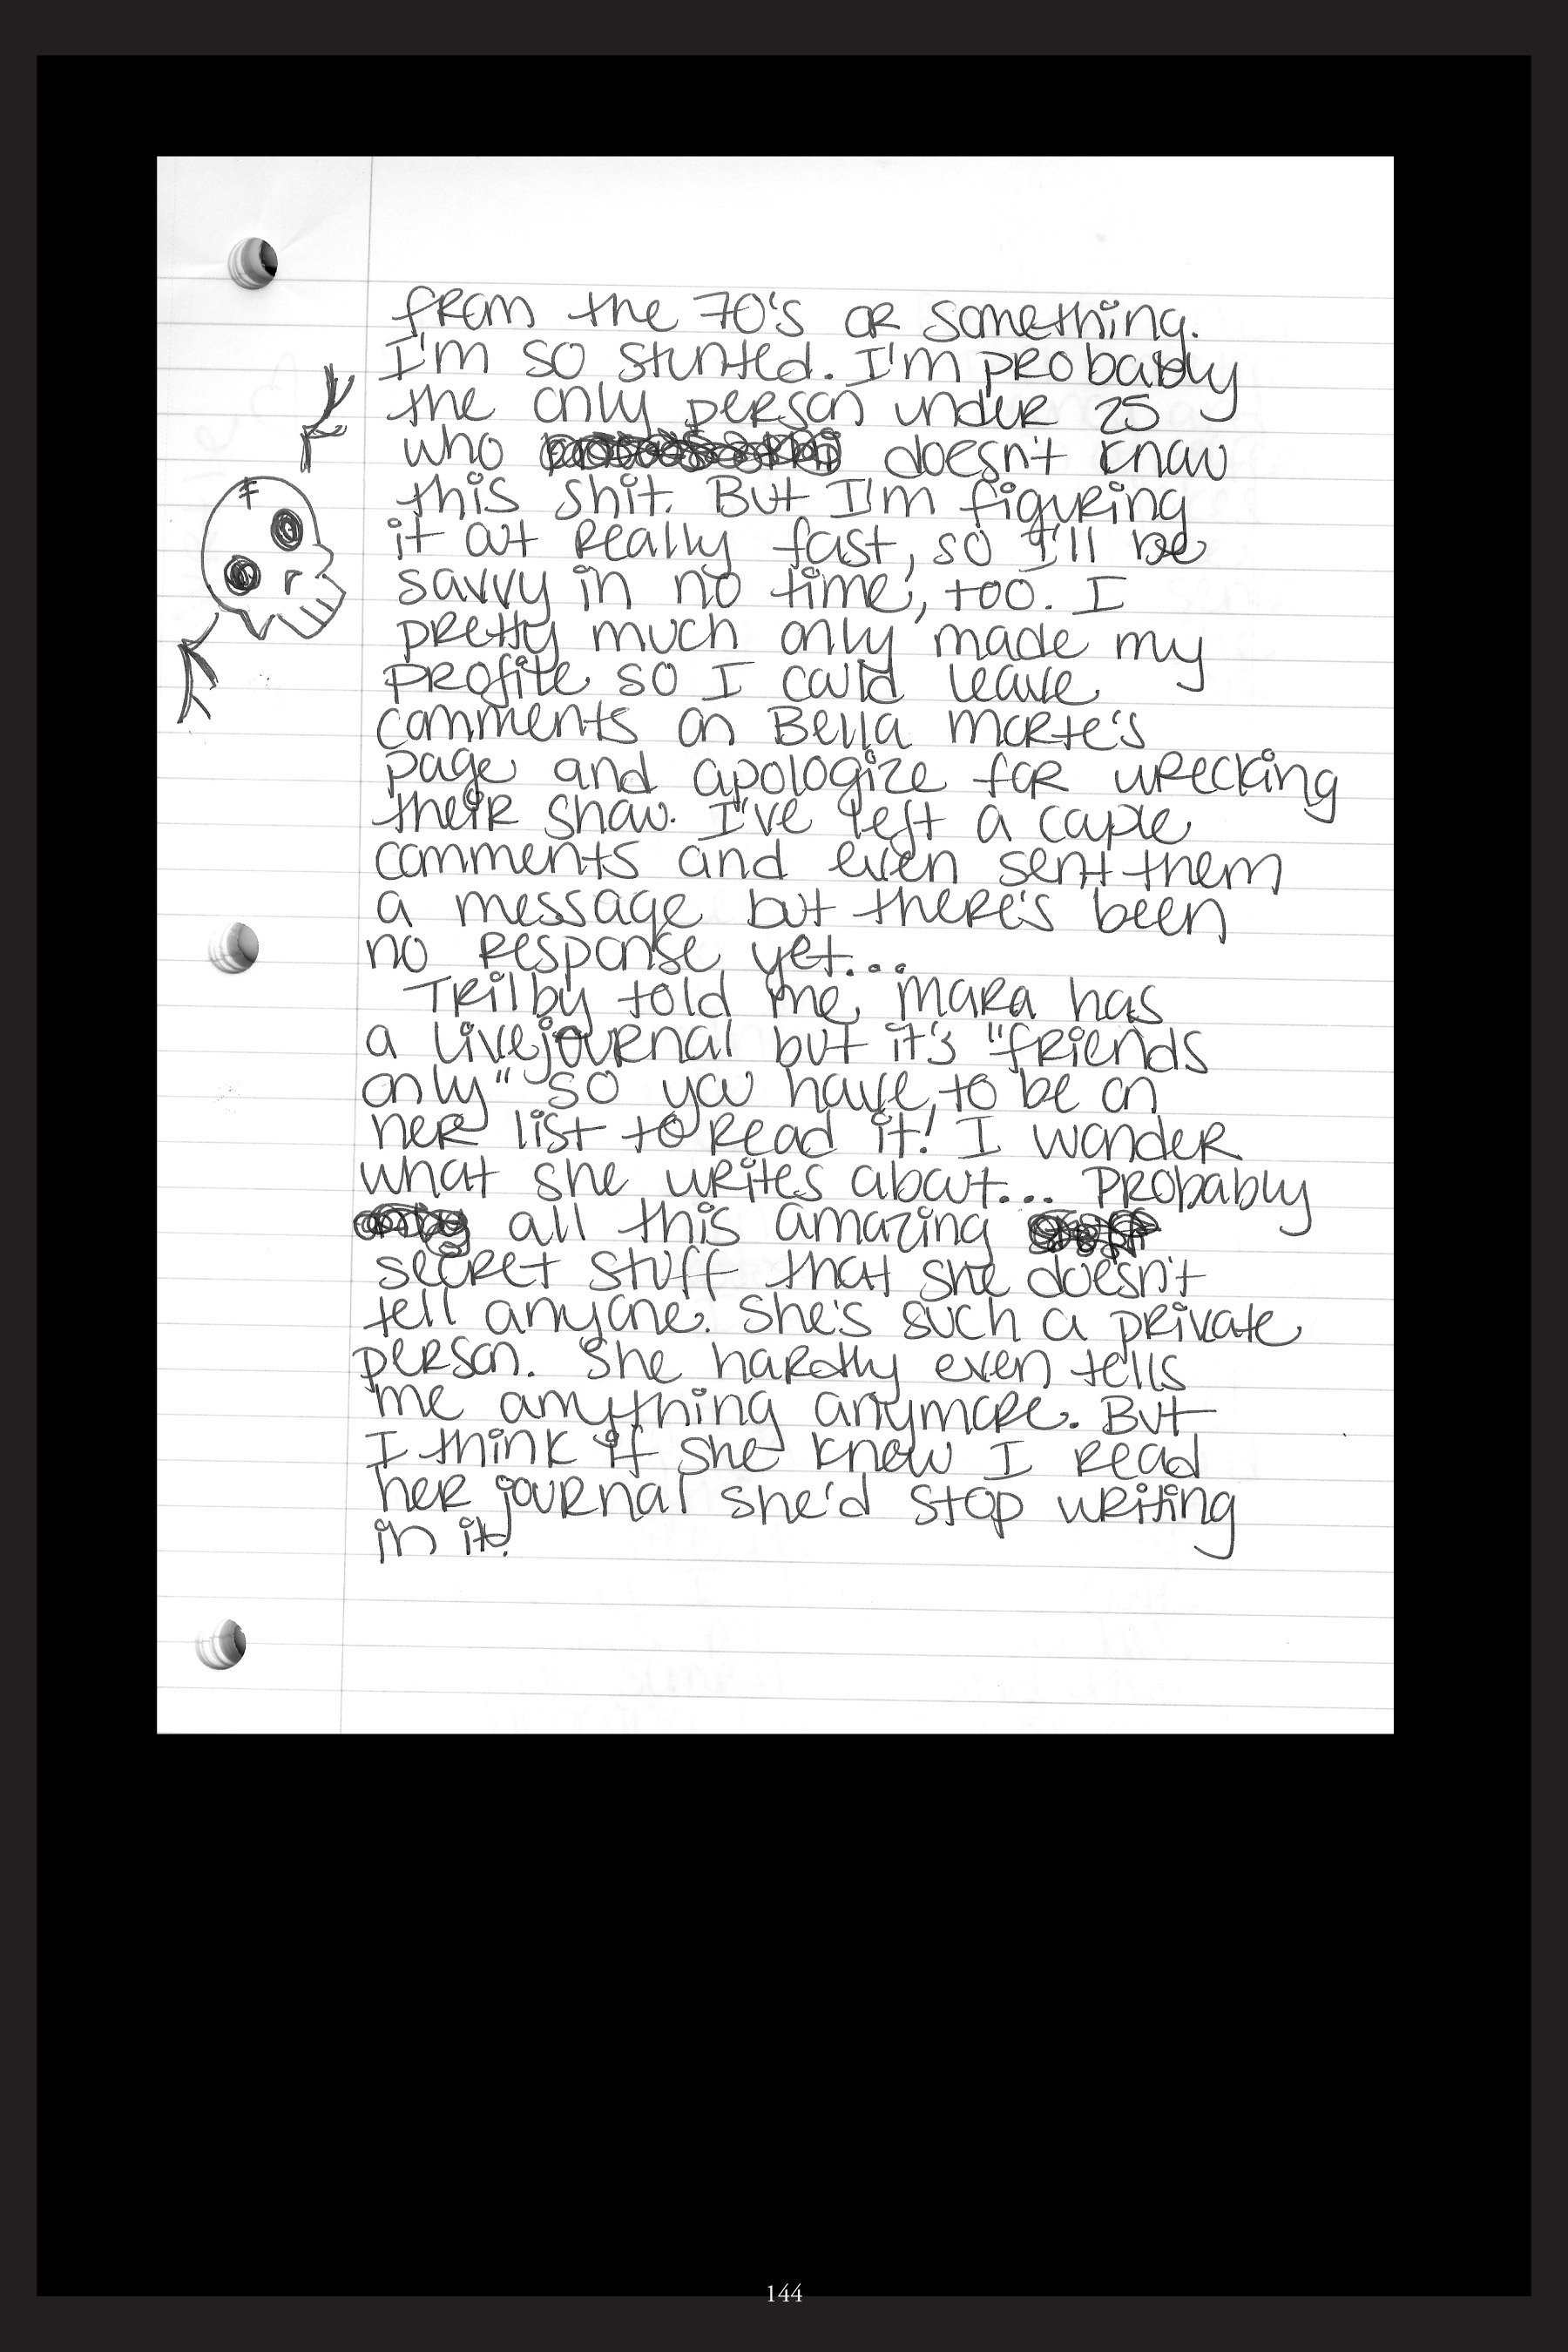 from the 70's or something.
I'm so stunted. I'm probably
the only person under 25
who doesn't know
this shit. But I'm figuring
it out really fast, so I'll be
savvy in no time, too. I
pretty much only made my
profile so I could leave
comments on Bella Morte's
page and apologize for wrecking
their show. I've left a couple
comments and even sent them
a message but there's been
no response yet...
Trilby told me Mara has
a livejournal but it's "friends
only" so you have to be on
her list to read it! I wonder
what she writes about... Probably
all this amazing
secret stuff that she doesn't
tell anyone. She's such a private
person. She hardly even tells
me anything anymore. But
I think if she knew I read
her journal she'd stop writing
in it!
144